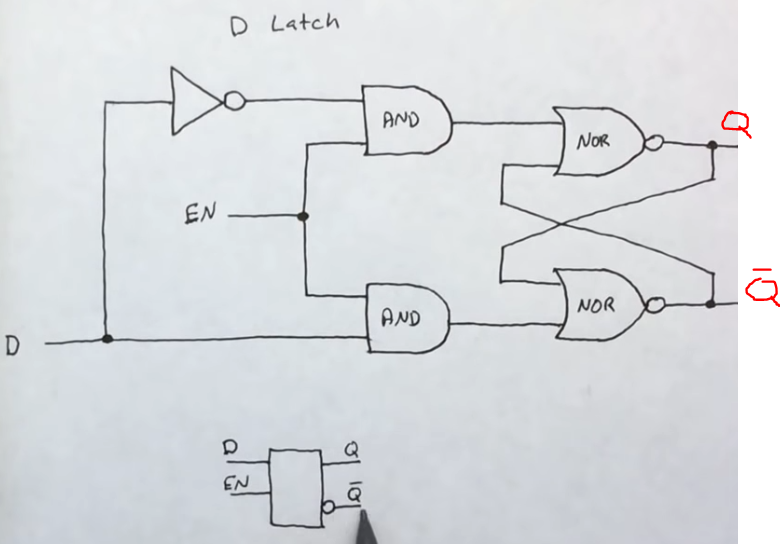 D Latch
AND
NOR
Q
EN
AND
NOR
Q̅
D
D
Q
EN
Q̅